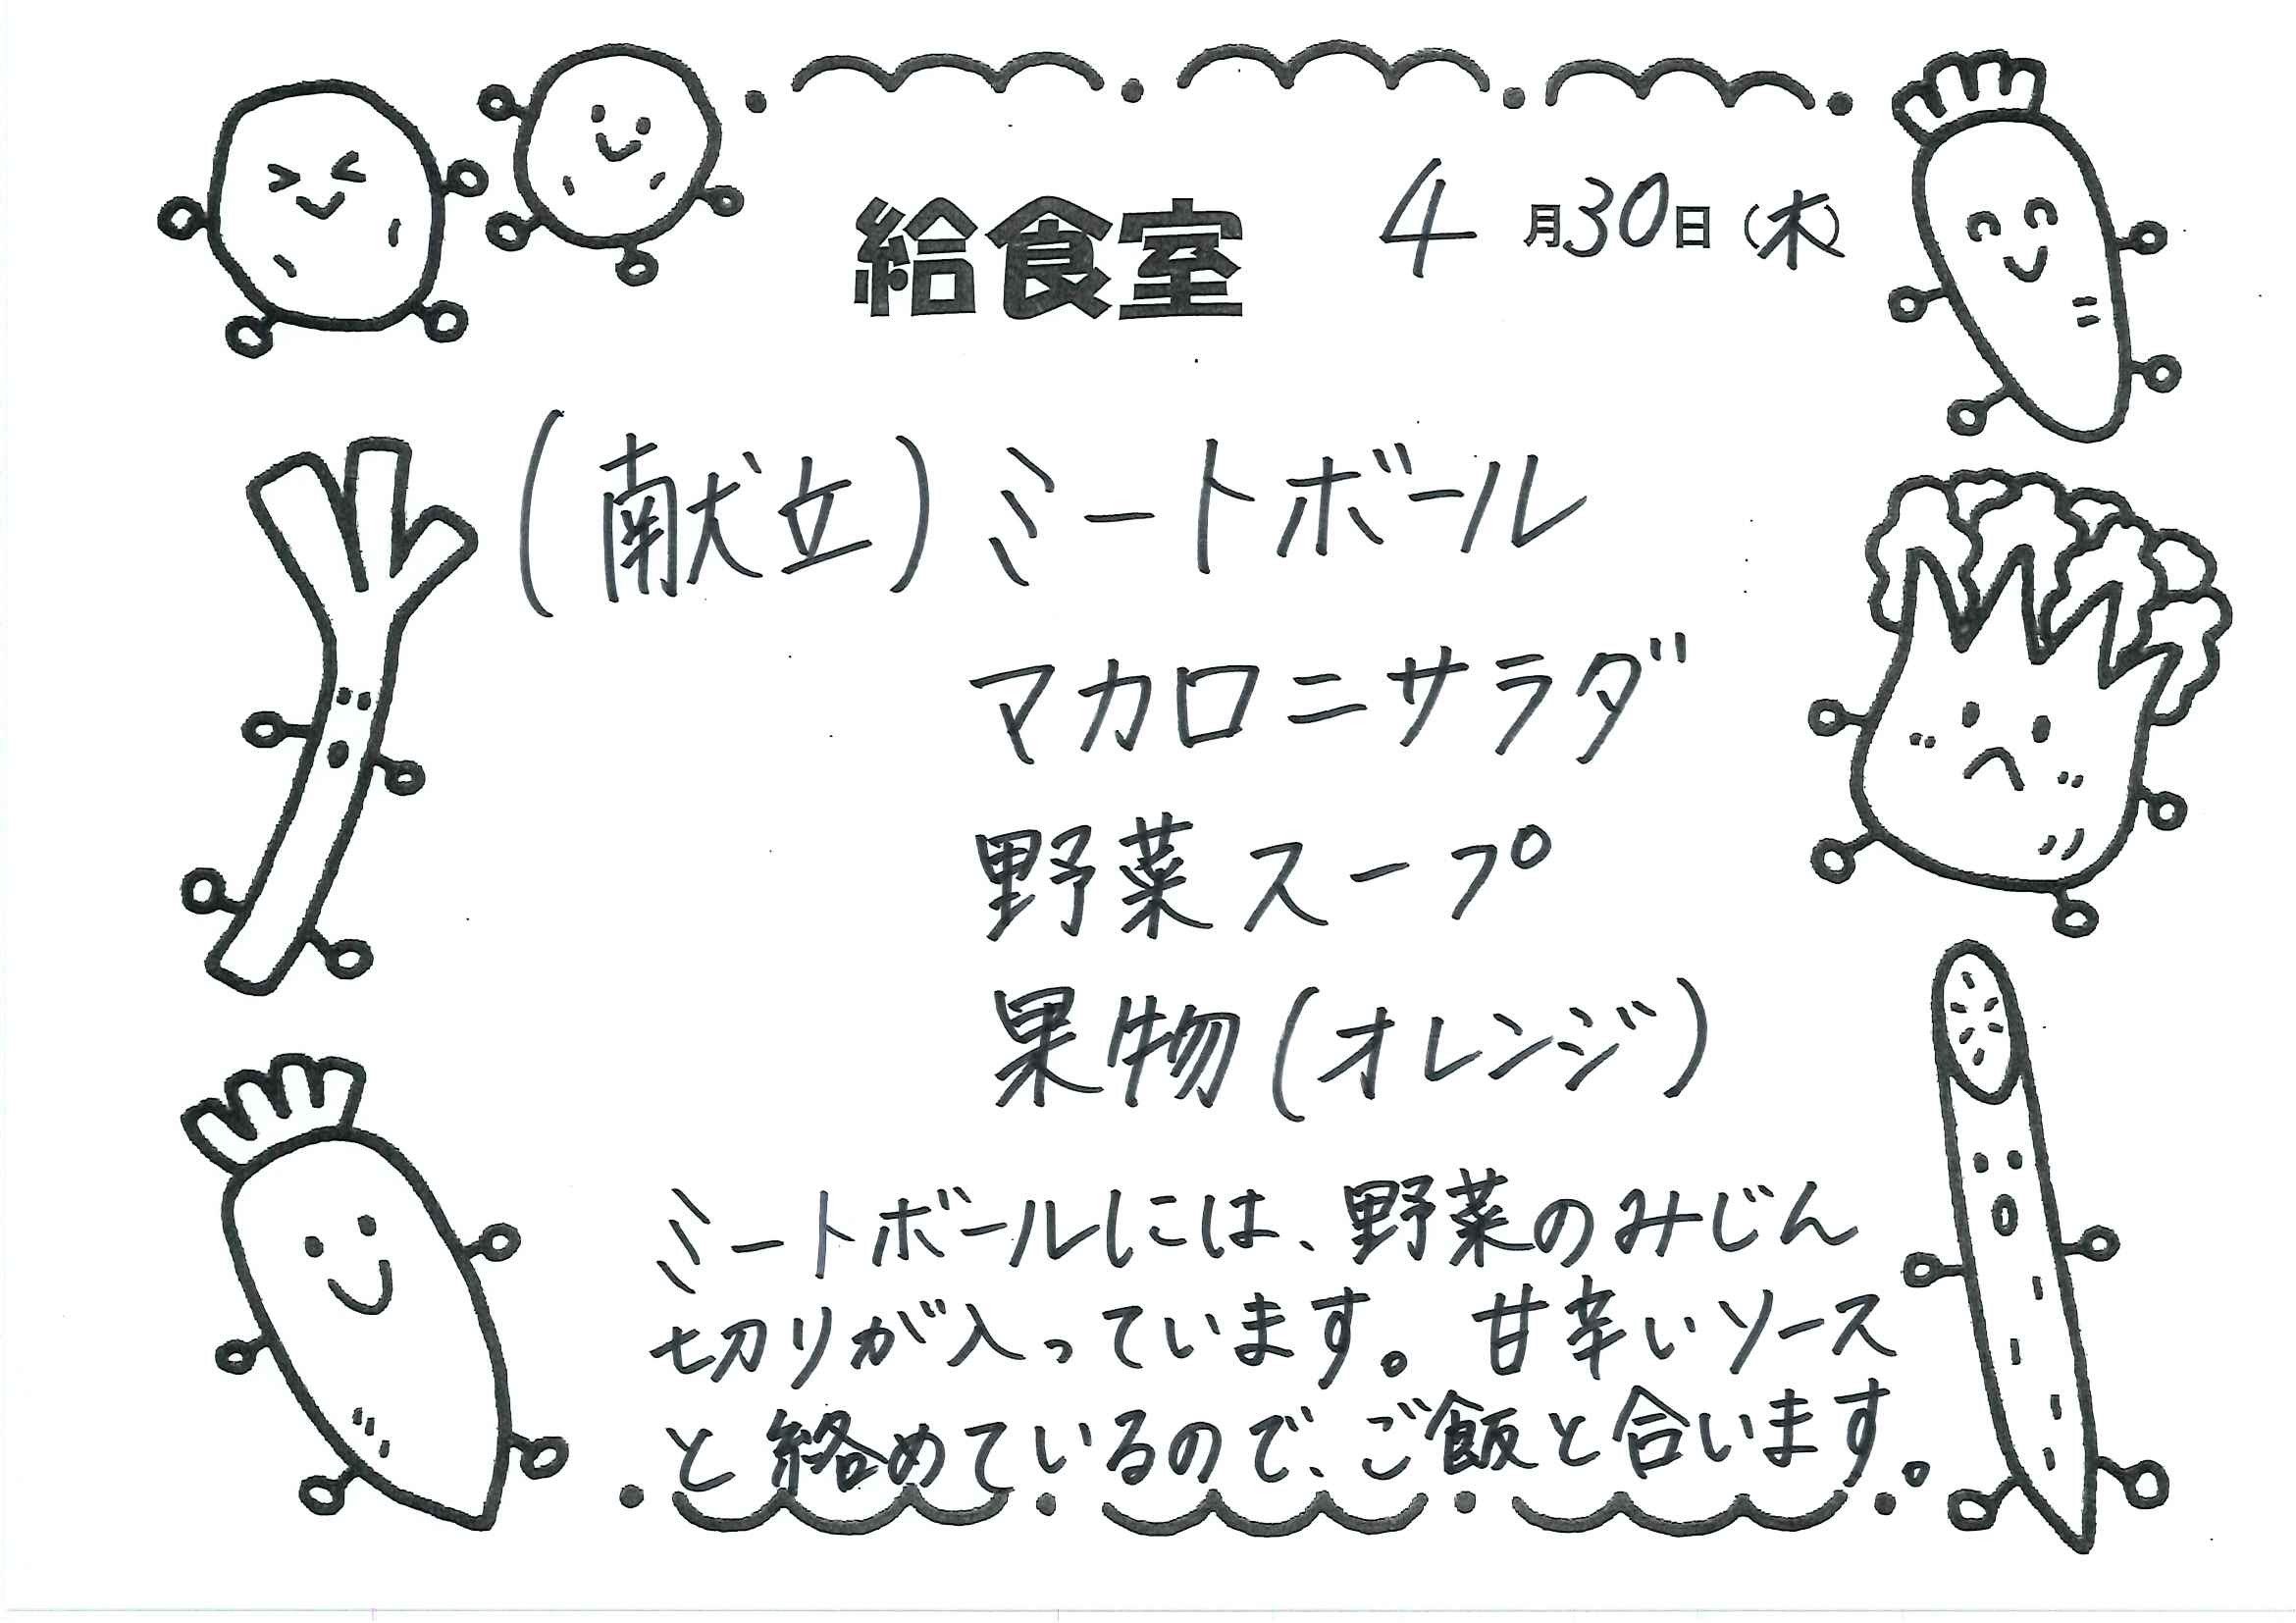 給食室 4月30日(木)
(献立)ミートボール
マカロニサラダ
野菜スープ
果物(オレンジ)
ミートボールには、野菜のみじん
切りが入っています。甘辛いソース
と絡めているので、ご飯と合います。